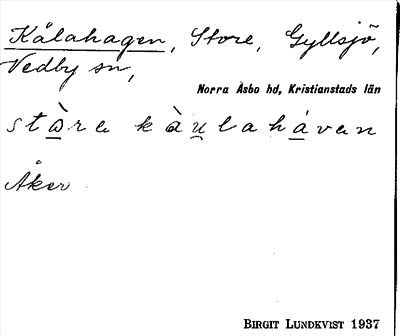 Kålahagen, Store, Gyllsjö,
Vedby sn,
Norra Åsbo hd, Kristianstads län
stàra kàulahávan
Åker
BIRGIT LUNDKVIST 1937